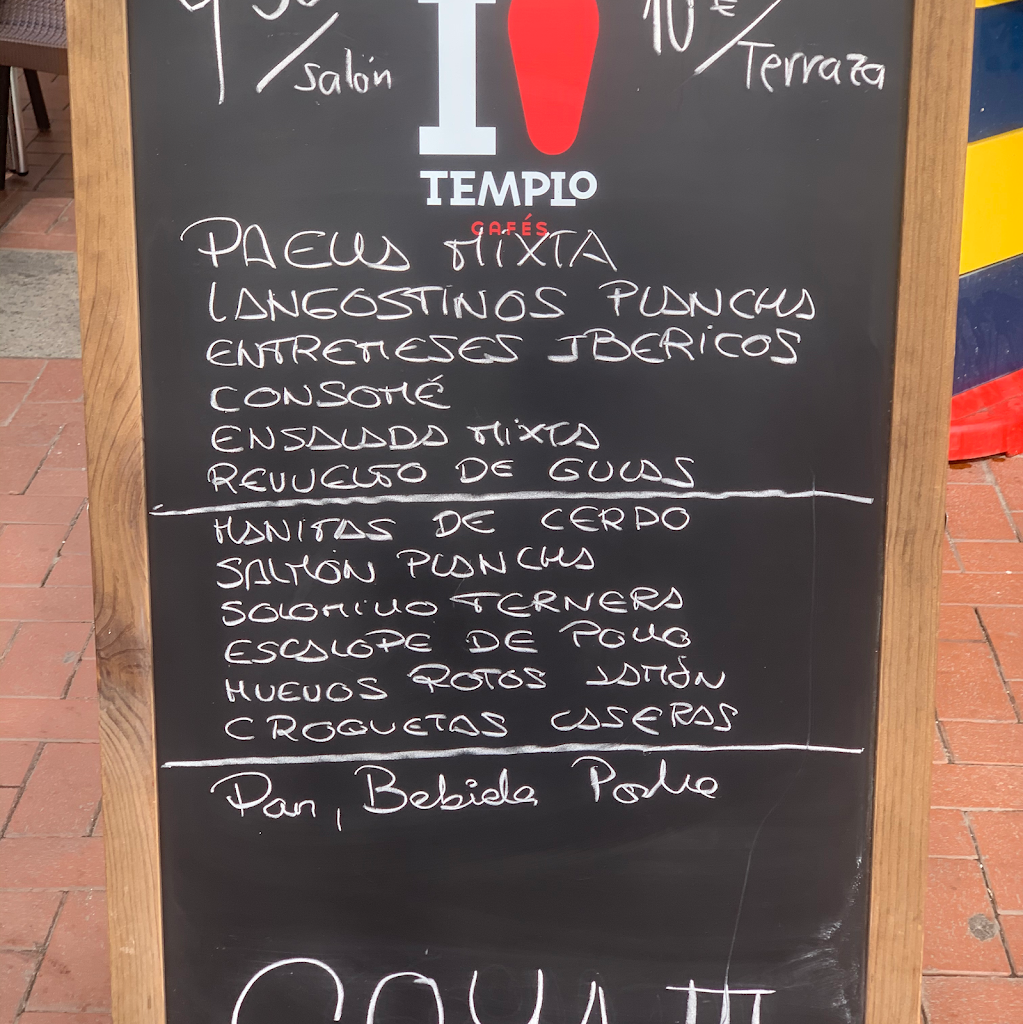 9'50 / Salón
10 € / Terraza
I
TEMPLO
CAFÉS
PAELLA MIXTA
LANGOSTINOS PLANCHA
ENTREMESES IBERICOS
CONSOMÉ
ENSALADA MIXTA
REVUELTO DE GULAS
MANITAS DE CERDO
SALMÓN PLANCHA
SOLOMILLO TERNERA
ESCALOPE DE POLLO
HUEVOS ROTOS JAMÓN
CROQUETAS CASERAS
Pan, Bebida Postre
GOYA III